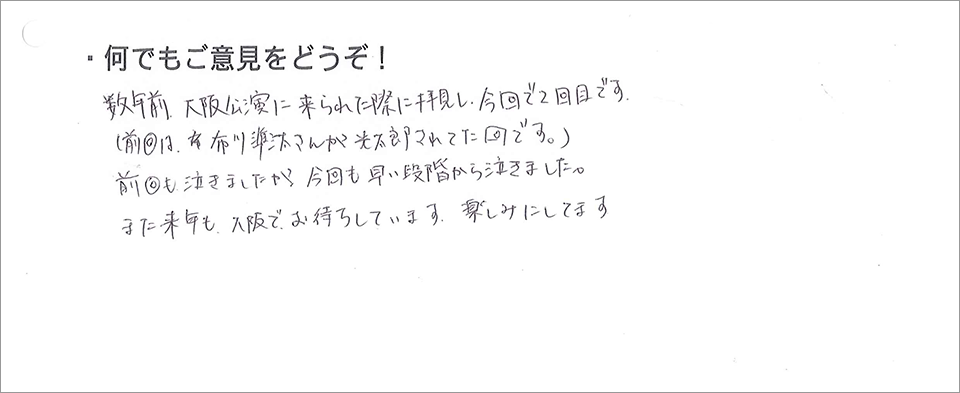 ・何でもご意見をどうぞ！
数年前、大阪公演に来られた際に拝見し、今回で2回目です。
(前回は、布川準汰さんが光太郎されてた回です。)
前回も泣きましたが、今回も早い段階から泣きました。
また来年も、大阪で、お待ちしています。楽しみにしてます